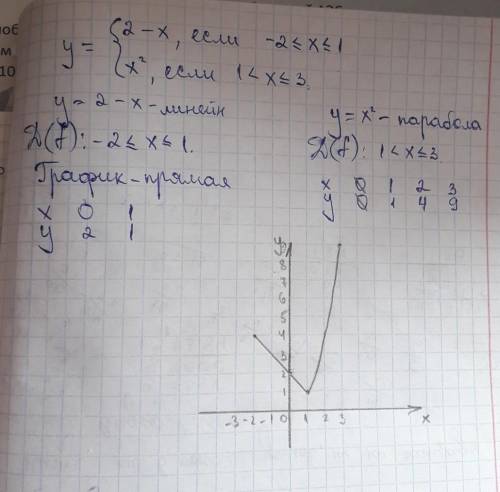 об
м
10
y = { 2 - x, если -2 ≤ x ≤ 1
x², если 1 < x ≤ 3.
y = 2 - x - линейн
D(f): -2 ≤ x ≤ 1.
График - прямая
x 0 1
y 2 1
y = x² - парабола
D(f): 1 < x ≤ 3
x 0 1 2 3
y 0 1 4 9
y
9
8
7
6
5
4
3
2
1
-3 -2 -1 0 1 2 3 x